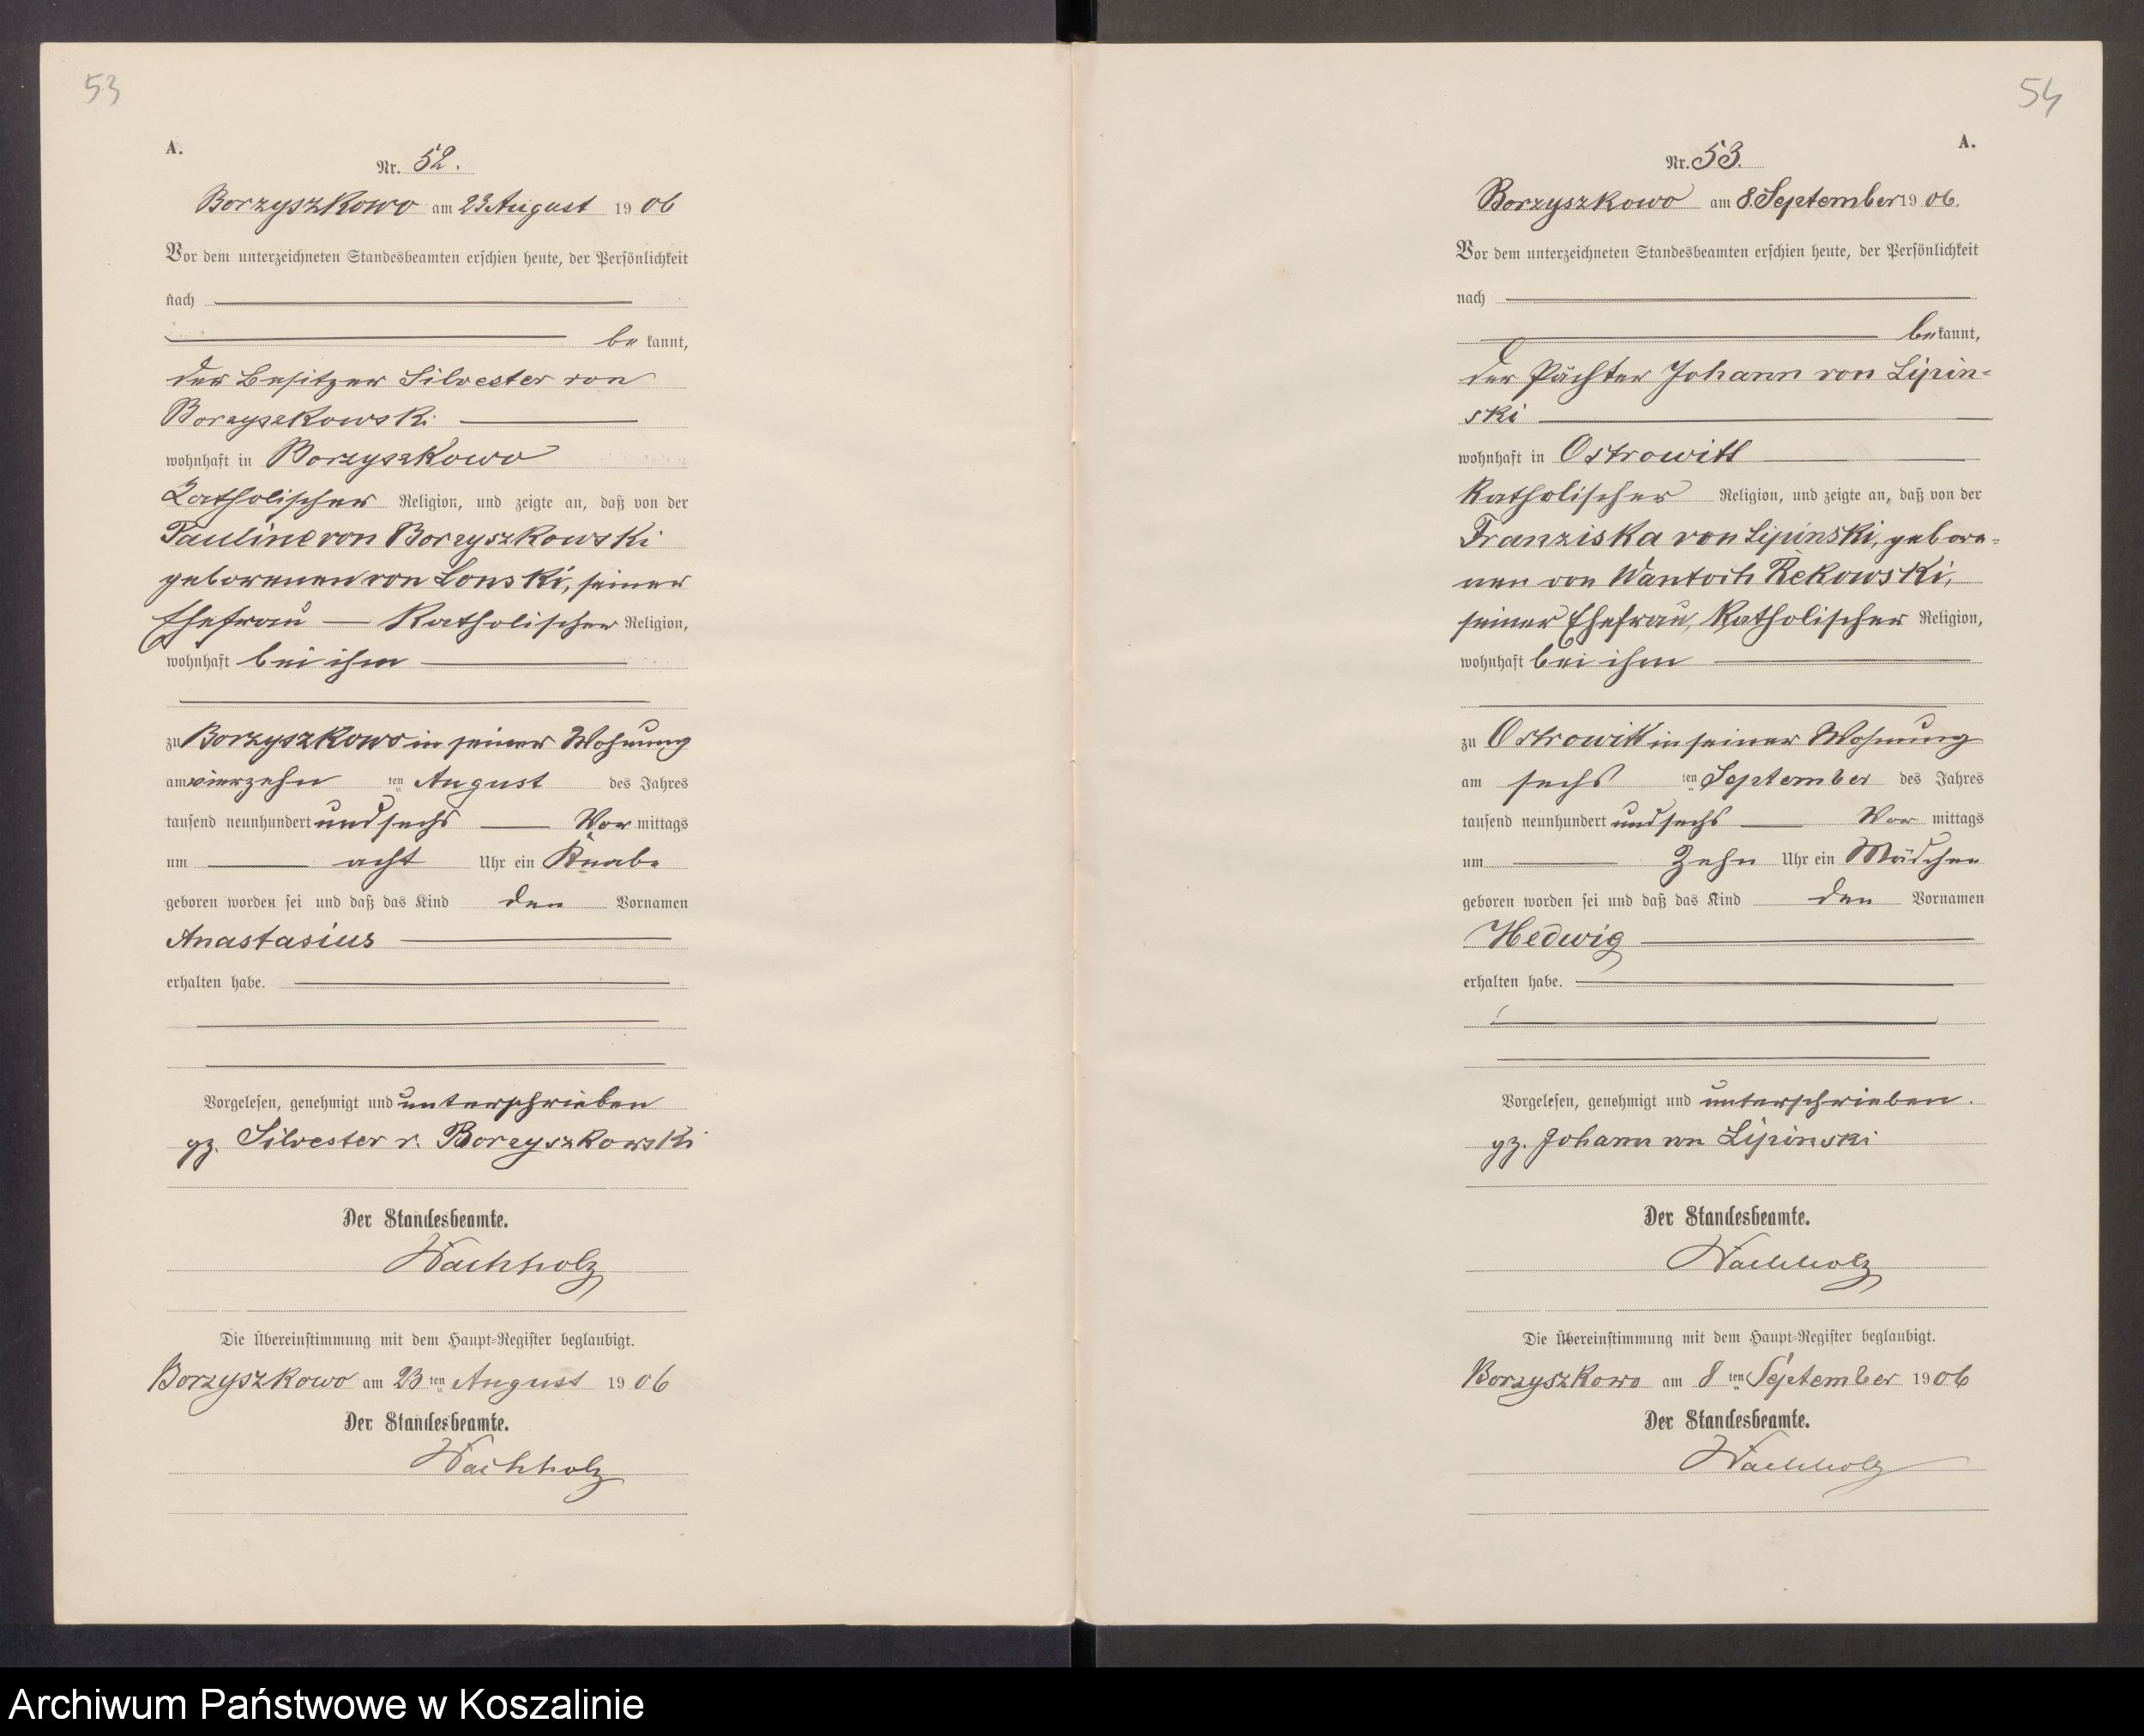 53
A.
Nr. 52.
Borzyszkowo am 23 August 1906
Vor dem unterzeichneten Standesbeamten erschien heute, der Persönlichkeit
nach
be kannt,
der Besitzer Silvester von
Borzyszkowski
wohnhaft in Borzyszkowo
Katholischer Religion, und zeigte an, daß von der
Pauline von Borzyszkowski
geborenen von Lonski, seiner
Ehefrau — Katholischer Religion,
wohnhaft bei ihm
zu Borzyszkowo in seiner Wohnung
am vierzehn ten August des Jahres
tausend neunhundert und sechs — Vor mittags
um — acht Uhr ein Knabe
geboren worden sei und daß das Kind den Vornamen
Anastasius
erhalten habe.
Vorgelesen, genehmigt und unterschrieben
gz. Silvester v. Borzyszkowski
Der Standesbeamte.
Wachholz
Die Übereinstimmung mit dem Haupt-Register beglaubigt.
Borzyszkowo am 23 ten August 1906
Der Standesbeamte.
Wachholz
54
A.
Nr. 53.
Borzyszkowo am 8. September 1906.
Vor dem unterzeichneten Standesbeamten erschien heute, der Persönlichkeit
nach
be kannt,
der Pächter Johann von Lipin-
ski
wohnhaft in Ostrowitt
Katholischer Religion, und zeigte an, daß von der
Franziska von Lipinski, gebore-
nen von Wantoch Rekowski,
seiner Ehefrau, Katholischer Religion,
wohnhaft bei ihm
zu Ostrowitt in seiner Wohnung
am sechs ten September des Jahres
tausend neunhundert und sechs — Vor mittags
um — Zehn Uhr ein Mädchen
geboren worden sei und daß das Kind den Vornamen
Hedwig
erhalten habe.
Vorgelesen, genehmigt und unterschrieben.
gz. Johann von Lipinski
Der Standesbeamte.
Wachholz
Die Übereinstimmung mit dem Haupt-Register beglaubigt.
Borzyszkowo am 8 ten September 1906
Der Standesbeamte.
Wachholz
Archiwum Państwowe w Koszalinie